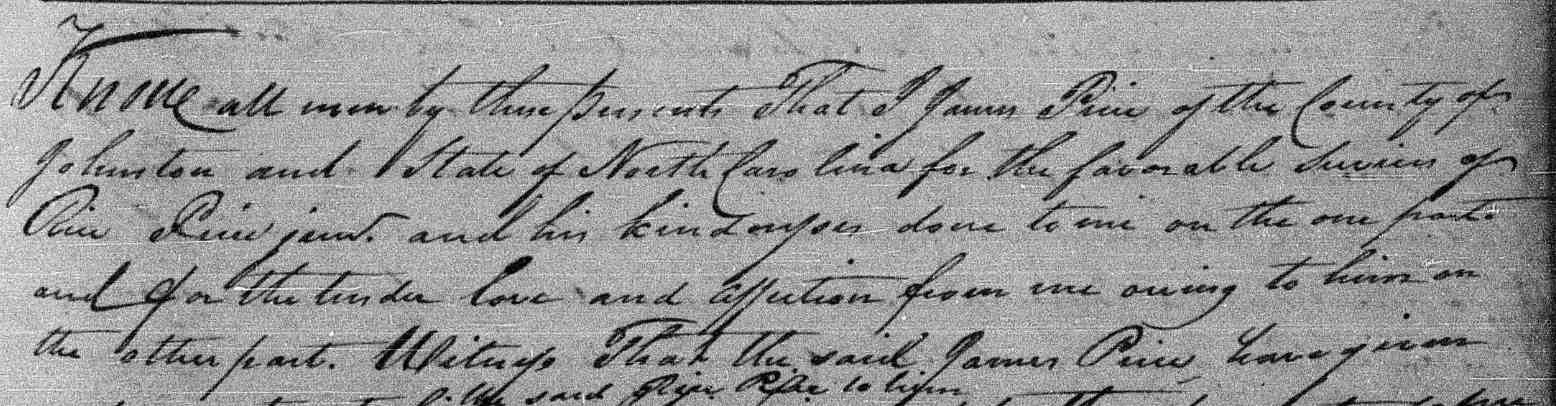 Know all men by these presents That I James Price of the County of
Johnston and State of North Carolina for the favorable Services of
Rice Price junr. and his kindnesses done to me on the one part
and for the tender love and affection from me owing to him on
the other part. Witness That the said James Price have given
the said Rice Price to him